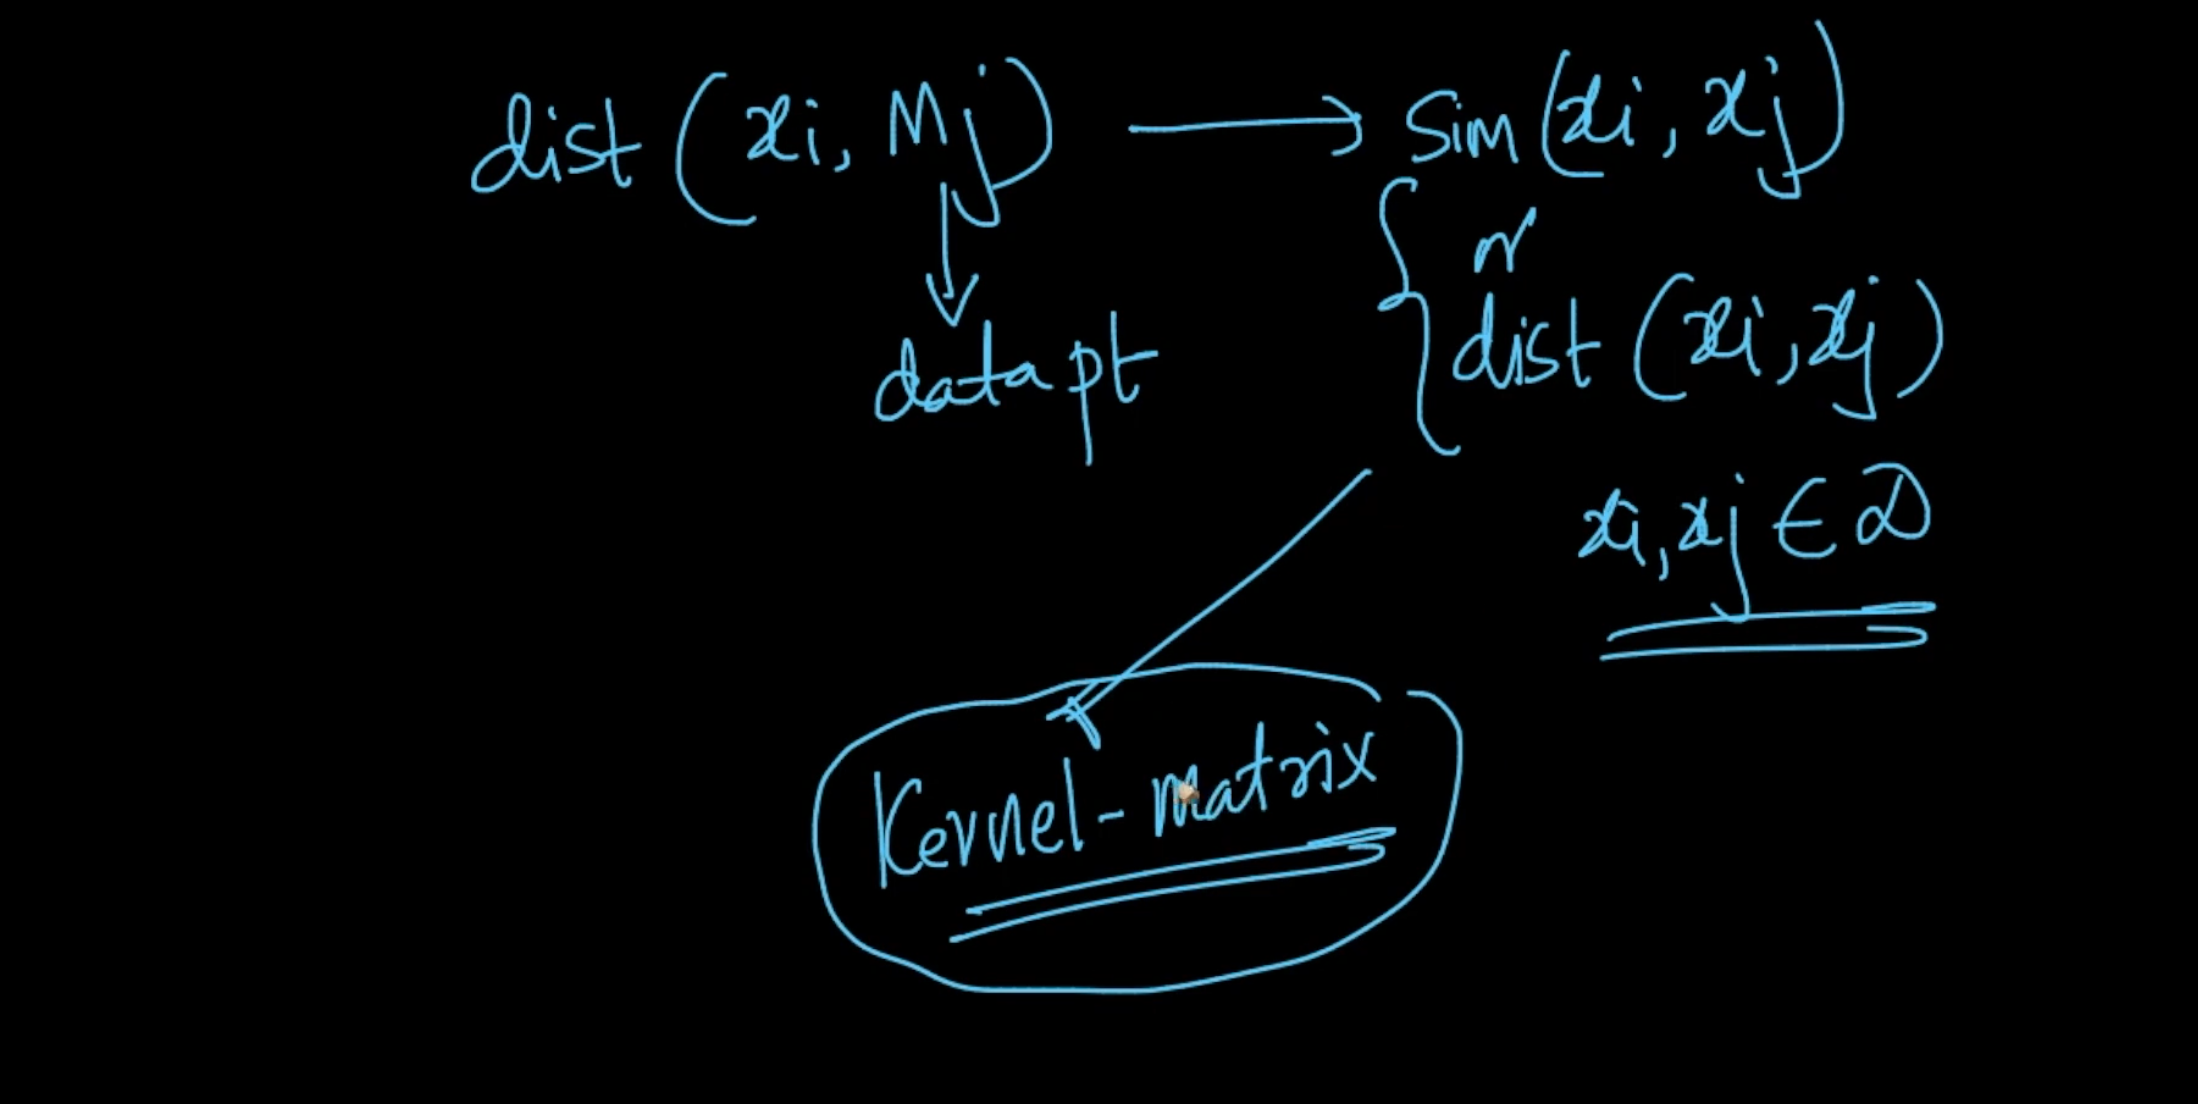 dist (xi, Mj) → Sim (xi, xj)
or
data pt
dist (xi, xj)
xi, xj ∈ D
Kernel-matrix